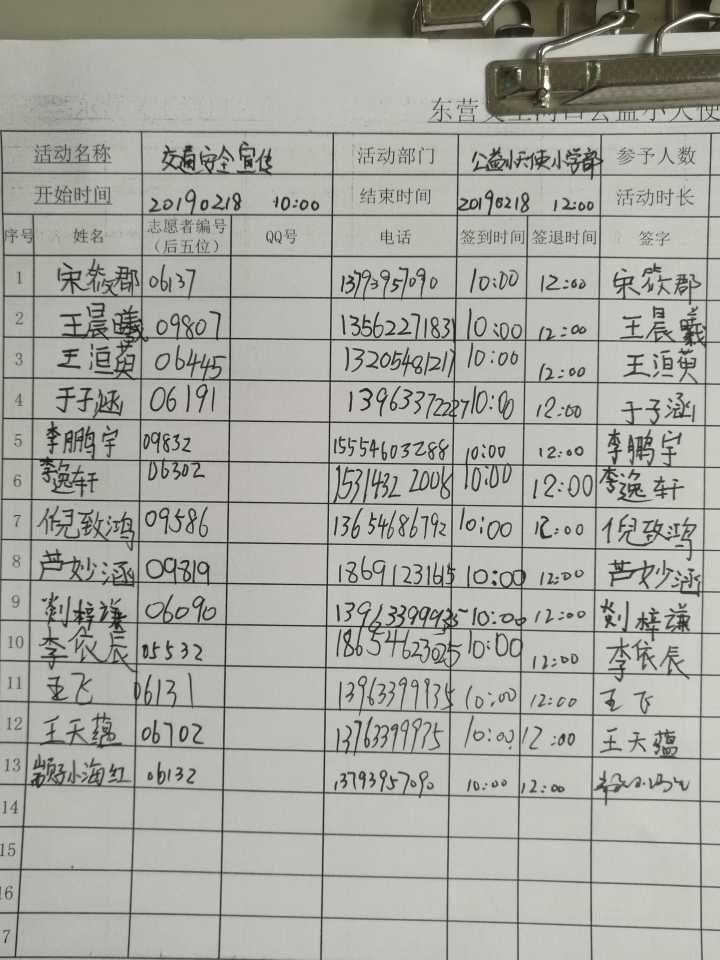 东营 公益小天使
活动名称 交通安全宣传 活动部门 公益小天使小学部 参予人数
开始时间 20190218 10:00 结束时间 20190218 12:00 活动时长
序号 姓名 志愿者编号(后五位) QQ号 电话 签到时间 签退时间 签字
1 宋筱郡 06137 13793957090 10:00 12:00 宋筱郡
2 王晨曦 09807 13562271831 10:00 12:00 王晨曦
3 王洹英 06445 13205481217 10:00 12:00 王洹英
4 于子涵 06191 13963372227 10:00 12:00 于子涵
5 李鹏宇 09832 15554603288 10:00 12:00 李鹏宇
6 李逸轩 06302 15314322008 10:00 12:00 李逸轩
7 倪致鸿 09586 13654686792 10:00 12:00 倪致鸿
8 芦妙涵 09819 18691231615 10:00 12:00 芦妙涵
9 梓谦 06090 13963399935 10:00 12:00 梓谦
10 李依辰 05532 18654623025 10:00 12:00 李依辰
11 王飞 06131 13963399935 10:00 12:00 王飞
12 王天蕴 06702 13763399935 10:00 12:00 王天蕴
13 小海红 06132 13793957090 10:00 12:00
14
15
16
7